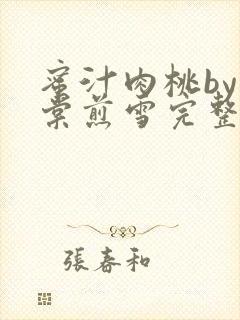 蜜汁肉桃by
棠煎雪完整
張春和